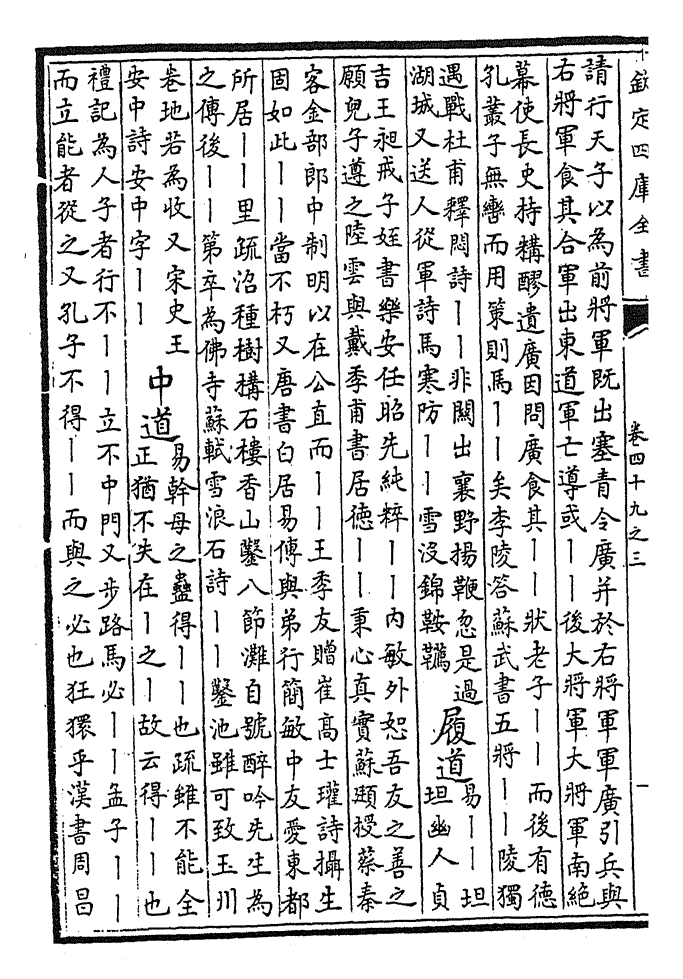 欽定四庫全書
卷四十九之三
請行天子以為前將軍既出塞青令廣并於右將軍軍廣引兵與
右將軍食其合軍出東道軍亡導或丨丨後大將軍大將軍南絕
幕使長史持糒醪遺廣因問廣食其丨丨狀老子丨丨而後有德
孔叢子無轡而用策則馬丨丨矣李陵答蘇武書五將丨丨陵獨
遇戰杜甫釋悶詩丨丨非關出襄野揚鞭忽是過
湖城又送人從軍詩馬寒防丨丨雪沒錦鞍韉
履道
易丨丨坦
坦幽人貞
吉王昶戒子姪書樂安任昭先純粹丨丨內敏外恕吾友之善之
願兒子遵之陸雲與戴季甫書居德丨丨秉心真實蘇頲授蔡秦
客金部郎中制明以在公直而丨丨王季友贈崔高士瓘詩攝生
固如此丨丨當不朽又唐書白居易傳與弟行簡敏中友愛東都
所居丨丨里疏沼種樹構石樓香山鑿八節灘自號醉吟先生為
之傳後丨丨第卒為佛寺蘇軾雪浪石詩丨丨鑿池雖可致玉川
卷地若為收又宋史王
安中詩安中字丨丨
中道
易幹母之蠱得丨丨也疏雖不能全
正猶不失在丨之丨故云得丨丨也
禮記為人子者行不丨丨立不中門又步路馬必丨丨孟子丨丨
而立能者從之又孔子不得丨丨而與之必也狂獧乎漢書周昌